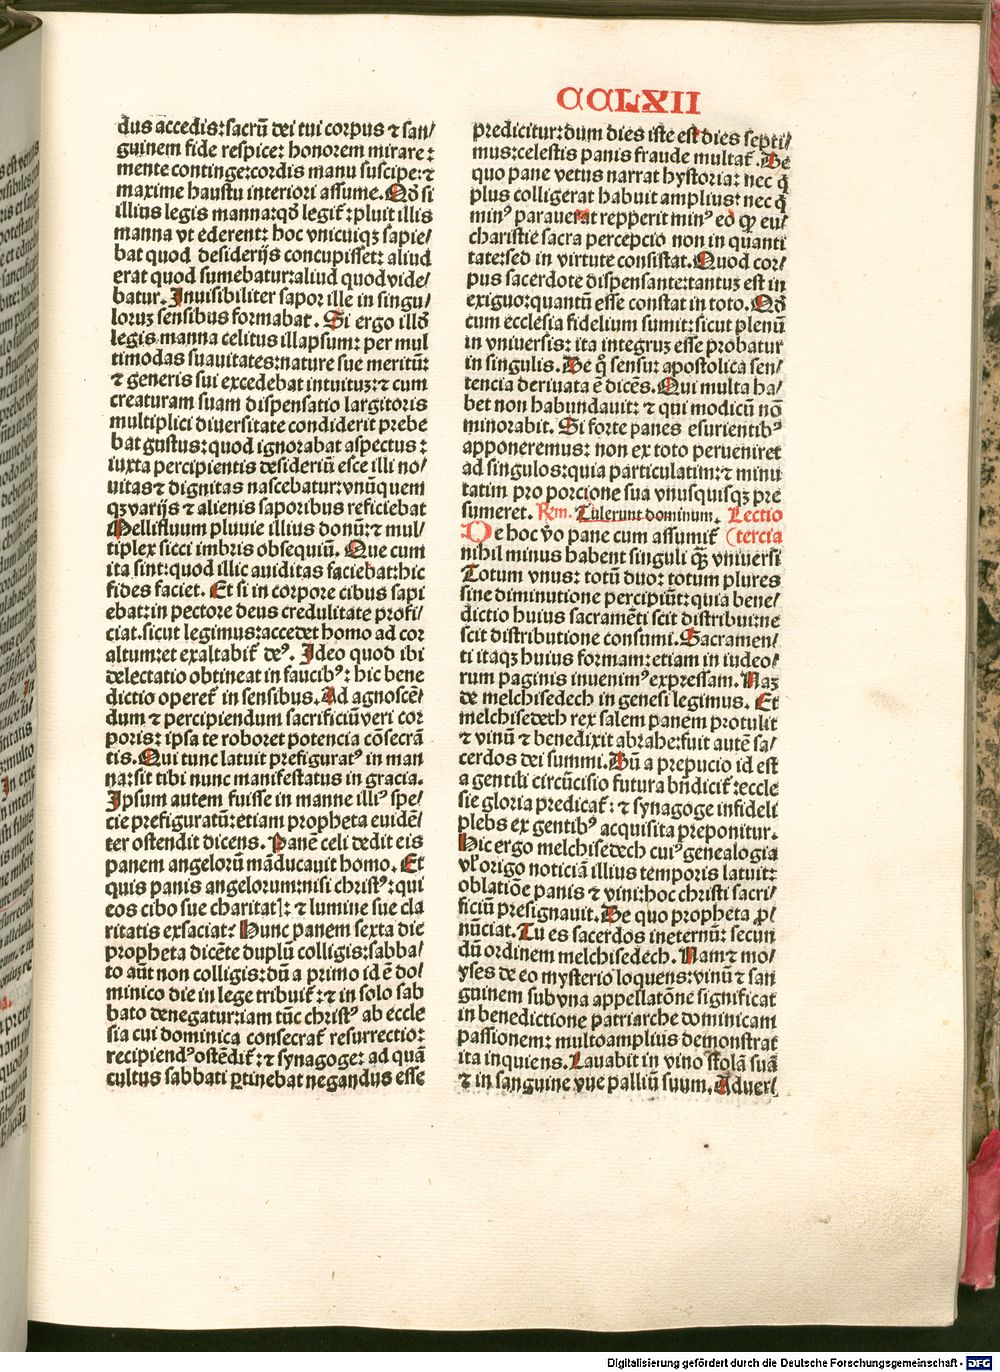 CCLXII
dus accedis: sacrū dei tui corpus ⁊ san/
guinem fide respice: honorem mirare:
mente continge: cordis manu suscipe: ⁊
maxime haustu interiori assume. Qd̄ si
illius legis manna: qd̄ legit᷑: pluit illis
manna vt ederent: hoc vnicuiqꝫ sapie/
bat quod desiderijs concupisset: aliud
erat quod sumebatur: aliud quod vide/
batur. Inuisibiliter sapor ille in singu/
loruꝫ sensibus formabat᷑. Si ergo illd̄
legis manna celitus illapsum: per mul
timodas suauitates: nature sue meritū:
⁊ generis sui excedebat intuituꝫ: ⁊ cum
creaturam suam dispensatio largitoris
multiplici diuersitate condiderit prebe
bat gustus: quod ignorabat aspectus:
iuxta percipientis desideriū esce illi no/
uitas ⁊ dignitas nascebatur: vnūquem
qꝫ varijs ⁊ alienis saporibus reficiebat
Mellifluum pluuie illius donū: ⁊ mul/
tiplex sicci imbris obsequiū. Que cum
ita sint: quod illic auiditas faciebat: hic
fides faciet. Et si in corpore cibus sapi
ebat: in pectore deus credulitate profi/
ciat. sicut legimus: accedet homo ad cor
altum: et exaltabit᷑ deꝰ. Ideo quod ibi
delectatio obtineat in faucibꝰ: hic bene
dictio operet᷑ in sensibus. Ad agnoscē/
dum ⁊ percipiendum sacrificiū veri cor
poris: ipsa te roboret potencia cōsecrā
tis. Qui tunc latuit prefiguratꝰ in man
na: sit tibi nunc manifestatus in gracia.
Ipsum autem fuisse in manne illiꝰ spe/
cie prefiguratū: etiam propheta euidē/
ter ostendit dicens. Panē celi dedit eis
panem angelorū māducauit homo. Et
quis panis angelorum: nisi christꝰ: qui
eos cibo sue charitatꝭ: ⁊ lumine sue cla
ritatis exsaciat: Hunc panem sexta die
propheta dicēte duplū colligis: sabba/
to aūt non colligis: dū a primo id ē do/
minico die in lege tribuit᷑: ⁊ in solo sab
bato denegatur: iam tūc christꝰ ab eccle
sia cui dominica consecrat᷑ resurrectio:
recipiendꝰ ostēdit᷑: ⁊ synagoge: ad quā
cultus sabbati ꝑtinebat negandus esse
predicitur: dum dies iste est dies septi/
mus: celestis panis fraude multat᷑. De
quo pane vetus narrat hystoria: nec q̄
plus colligerat habuit amplius: nec q̄
minꝰ parauerat repperit minꝰ eo ꝙ eu/
charistie sacra percepcio non in quanti
tate: sed in virtute consistat. Quod cor/
pus sacerdote dispensante: tantuꝫ est in
exiguo: quantū esse constat in toto. Qd̄
cum ecclesia fidelium sumit: sicut plenū
in vniuersis: ita integruꝫ esse probatur
in singulis. De q̊ sensu: apostolica sen/
tencia deriuata ē dicēs. Qui multa ha/
bet non habundauit: ⁊ qui modicū nō
minorabit. Si forte panes esurientibꝰ
apponeremus: non ex toto perueniret
ad singulos: quia particulatim: ⁊ minu
tatim pro porcione sua vnusquisqꝫ pre
sumeret. Rm. Tulerunt dominum. Lectio
De hoc v̊o pane cum assumit᷑ (tercia
nihil minus habent singuli q̄ꝫ vniuersi
Totum vnus: totū duo: totum plures
sine diminutione percipiūt: quia bene/
dictio huius sacramēti scit distribui: ne
scit distributione consumi. Sacramen/
ti itaqꝫ huius formam: etiam in iudeo/
rum paginis inuenimꝰ expressam. Naꝫ
de melchisedech in genesi legimus. Et
melchisedech rex salem panem protulit
⁊ vinū ⁊ benedixit abrahe: fuit autē sa/
cerdos dei summi. Dū a prepucio id est
a gentili circūcisio futura bn̄dicit᷑: eccle
sie gloria predicat᷑: ⁊ synagoge infideli
plebs ex gentibꝰ acquisita preponitur.
Hic ergo melchisedech cuiꝰ genealogia
vl᷑ origo noticiā illius temporis latuit:
oblatiōe panis ⁊ vini: hoc christi sacri/
ficiū presignauit. De quo propheta ꝓ/
nūciat. Tu es sacerdos in eternū: secun
dū ordinem melchisedech. Nam ⁊ mo/
yses de eo mysterio loquens: vinū ⁊ san
guinem sub vna appellatōne significat
in benedictione patriarche dominicam
passionem: multo amplius demonstrat
ita inquiens. Lauabit in vino stolā suā
⁊ in sanguine vue palliū suum. Aduer/
Digitalisierung gefördert durch die Deutsche Forschungsgemeinschaft - DFG